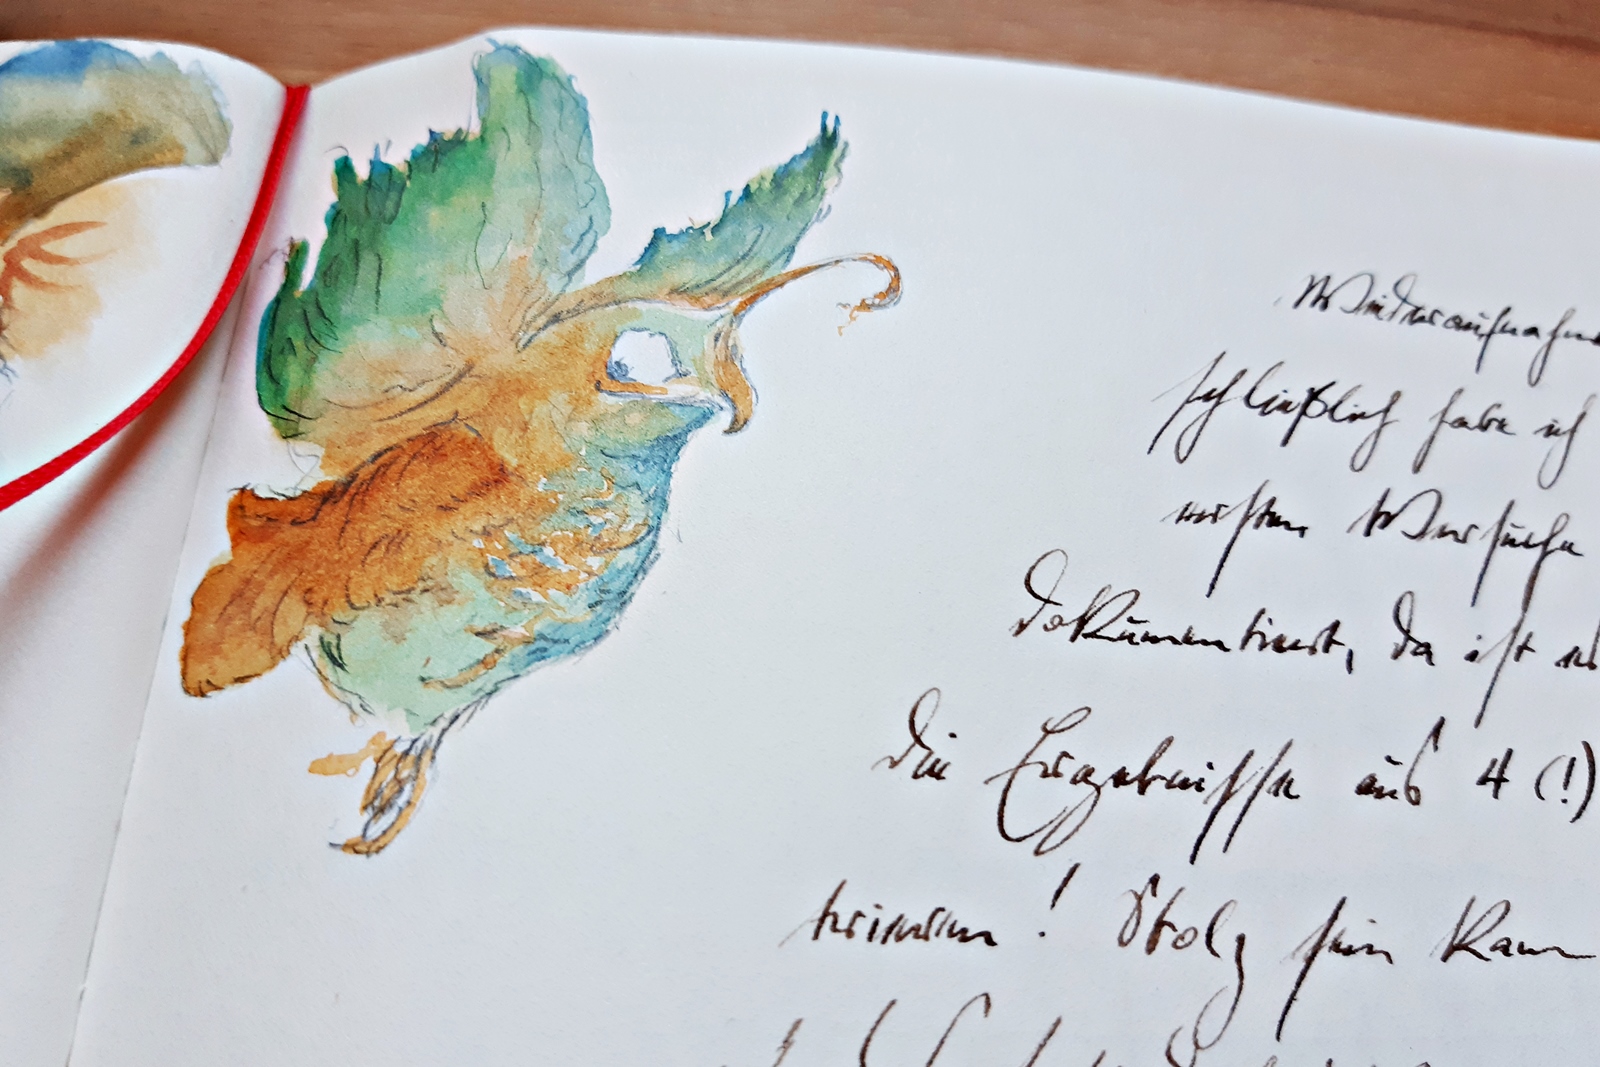 Wiederaufnahme
schließlich habe ich
ersten Versuche
dokumentiert, da ist es
die Ergebnisse aus 4 (!)
! Stolz sein kann